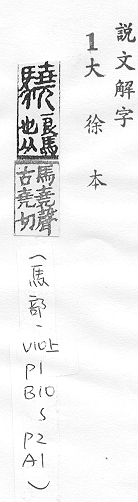 説文解字
1大徐本
驍
良馬
也从
馬堯聲
古堯切
(馬部、V10上
P1
B10
S
P2
A1)